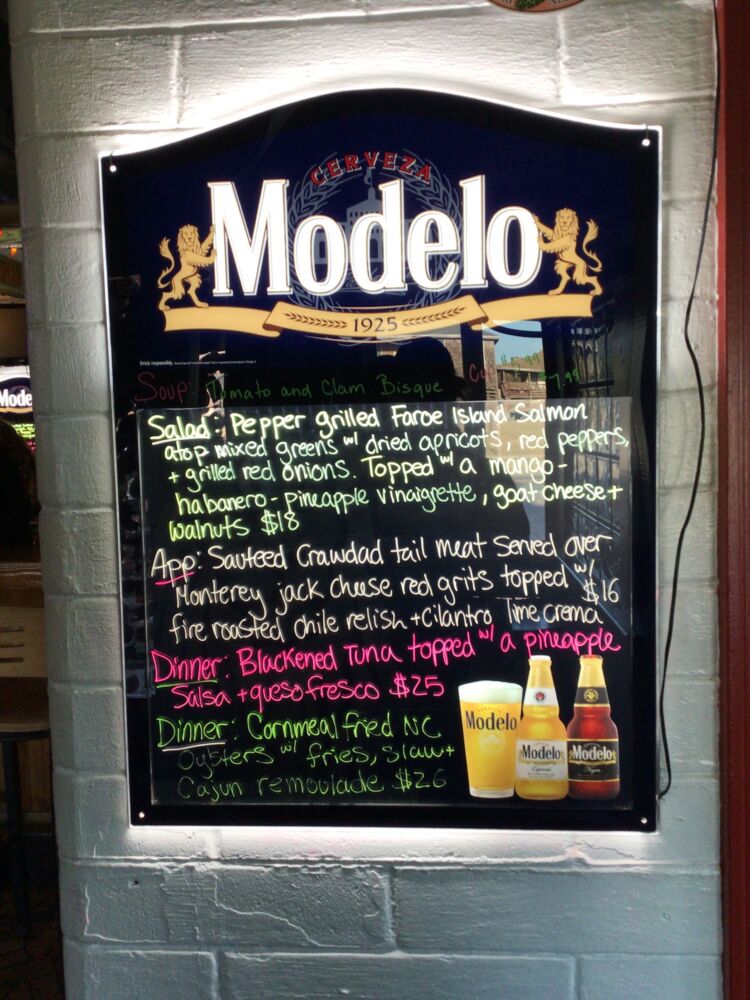 CERVEZA
Modelo
1925
Drink responsibly.
Soup: Tomato and Clam Bisque Cup $7.99
Salad: Pepper grilled Faroe Island Salmon
atop mixed greens w/ dried apricots, red peppers,
+ grilled red onions. Topped w/ a mango-
habanero-pineapple vinaigrette, goat cheese +
walnuts $18
App: Sauteed Crawdad tail meat served over
Monterey jack cheese red grits topped w/ $16
fire roasted chile relish + Cilantro lime crema
Dinner: Blackened Tuna topped w/ a pineapple
Salsa + queso fresco $25
Dinner: Cornmeal fried NC
Oysters w/ fries, slaw +
Cajun remoulade $26
Modelo
Modelo
Especial
Modelo
Negra
Mode